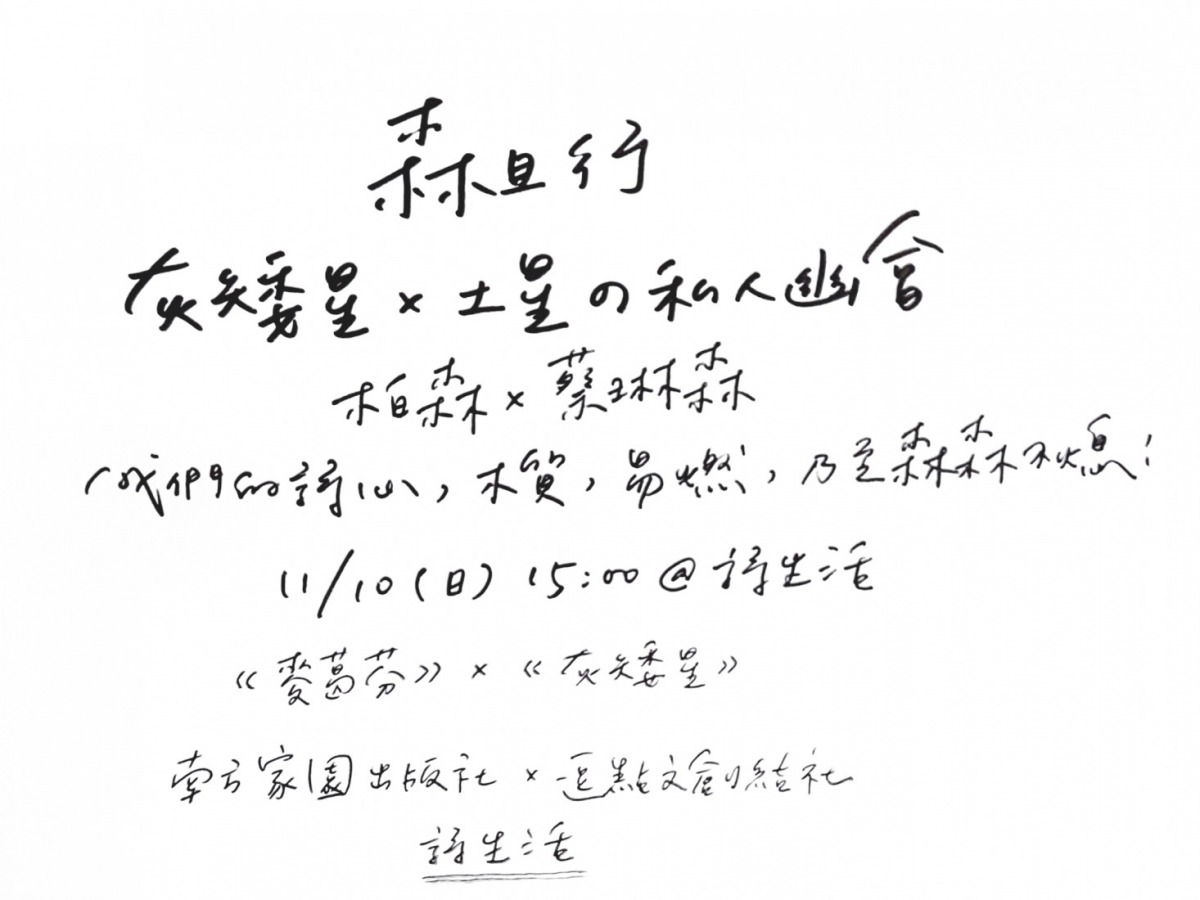 森旦行
灰矮星×土星の私人幽會
柏森×蔡琳森
我們的詩心,木質,易燃,乃至森森不熄!
11/10(日) 15:00@詩生活
《麥葛芬》×《灰矮星》
南方家園出版社×逗點文創結社
詩生活